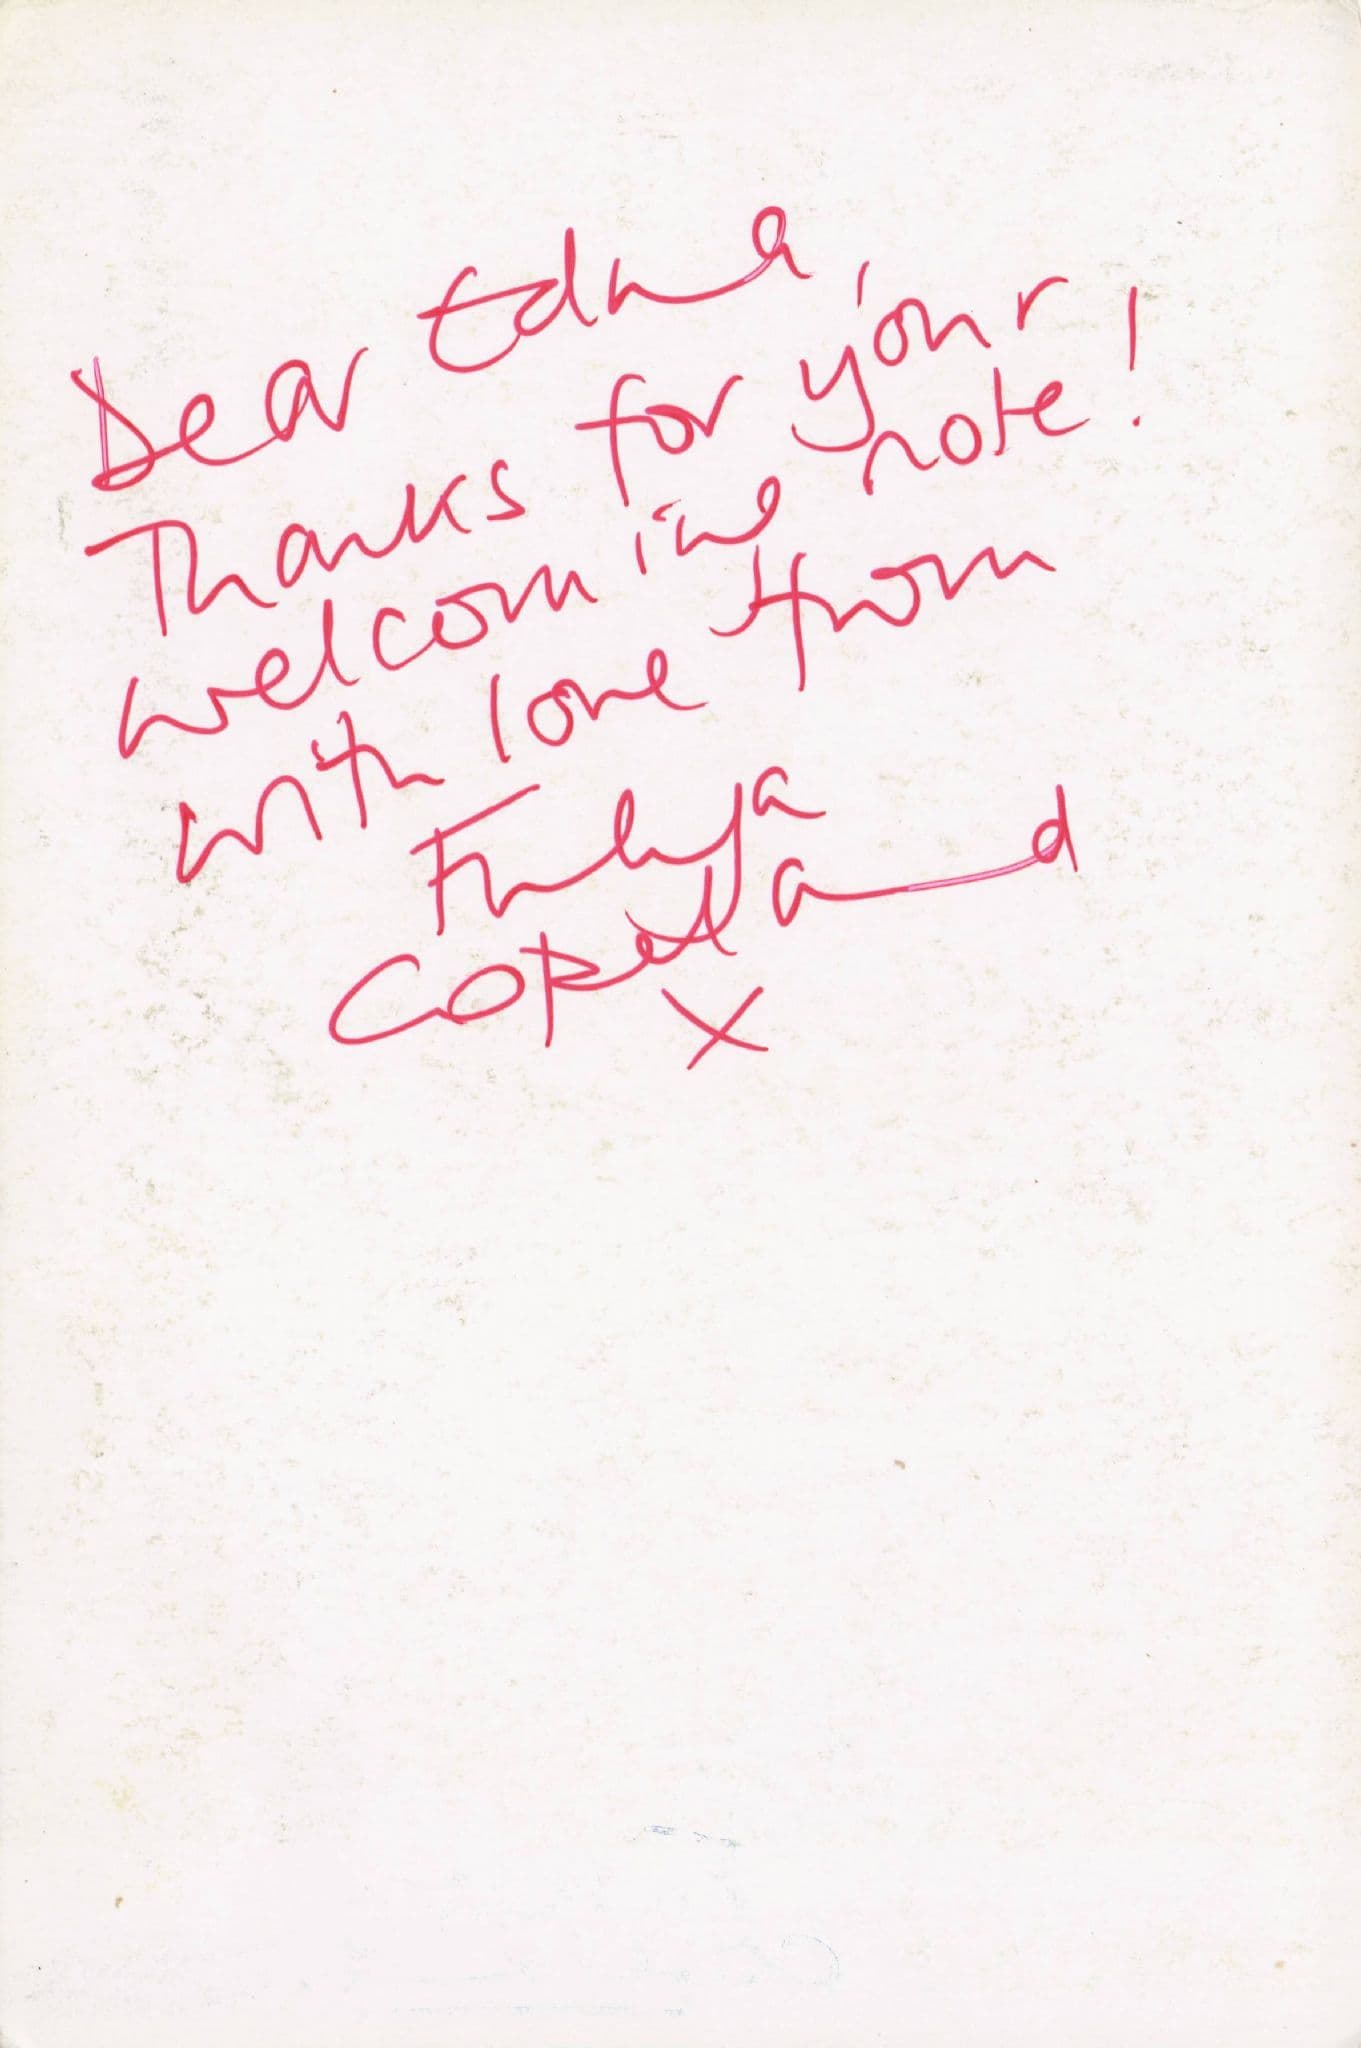 Dear Edna,
Thanks for your
welcoming note!
with love from
Fuhya
Copeland
X